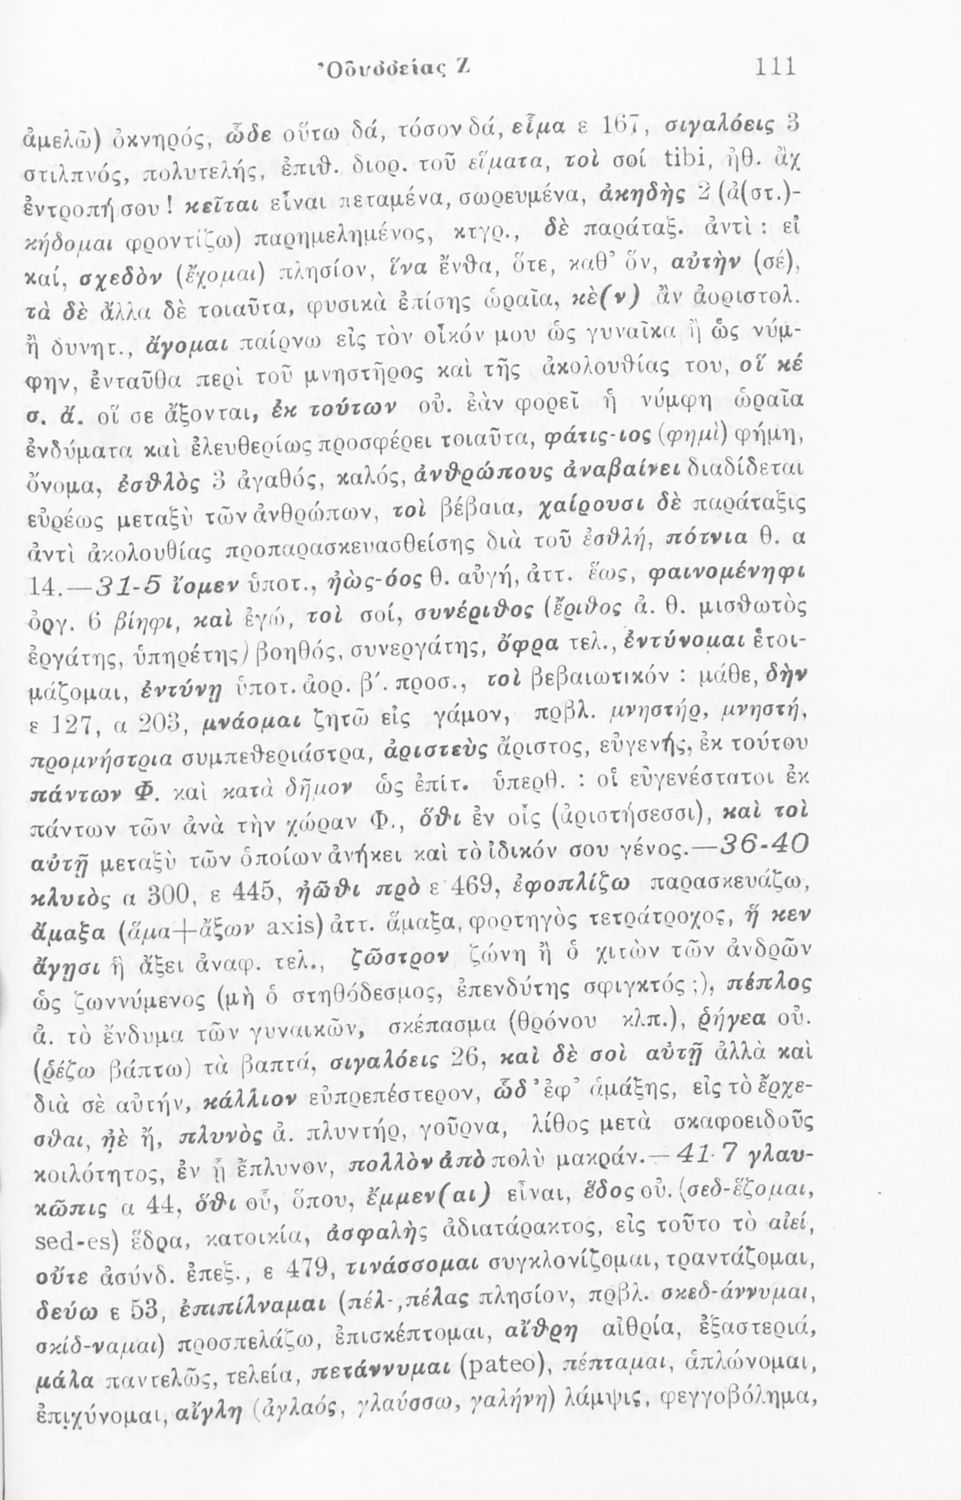 Ὀδυσσείας Ζ 111
ἀμελῶ) ὀκνηρός, ὧδε οὕτω δά, τόσον δά, εἷμα ε 167, σιγαλόεις 3
στιλπνός, πολυτελής, ἐπιθ. διορ. τοῦ εἵματα, τοὶ σοί tibi, ἠθ. ἂχ
ἐντροπή σου! κεῖται εἶναι πεταμένα, σωρευμένα, ἀκηδὴς 2 (ἀ(στ.)-
κήδομαι φροντίζω) παρημελημένος, κτγρ., δὲ παράταξ. ἀντὶ : εἰ
καί, σχεδὸν (ἔχομαι) πλησίον, ἵνα ἔνθα, ὅτε, καθ’ ὅν, αὐτὴν (σέ),
τὰ δὲ ἄλλα δὲ τοιαῦτα, φυσικὰ ἐπίσης ὡραῖα, κὲ(ν) ἂν ἀοριστολ.
ἢ δυνητ., ἄγομαι παίρνω εἰς τὸν οἶκόν μου ὡς γυναῖκα ἢ ὡς νύμ-
φην, ἐνταῦθα περὶ τοῦ μνηστῆρος καὶ τῆς ἀκολουθίας του, οἵ κέ
σ. ἄ. οἵ σε ἄξονται, ἐκ τούτων οὐ. ἐὰν φορεῖ ἡ νύμφη ὡραῖα
ἐνδύματα καὶ ἐλευθερίως προσφέρει τοιαῦτα, φάτις-ιος (φημὶ) φήμη,
ὄνομα, ἐσθλὸς 3 ἀγαθός, καλός, ἀνθρώπους ἀναβαίνει διαδίδεται
εὐρέως μεταξὺ τῶν ἀνθρώπων, τοὶ βέβαια, χαίρουσι δὲ παράταξις
ἀντὶ ἀκολουθίας προπαρασκευασθείσης διὰ τοῦ ἐσθλή, πότνια θ. α
14.—31-5 ἴομεν ὑποτ., ἠὼς-όος θ. αὐγή, ἀττ. ἕως, φαινομένηφι
ὀργ. 6 βίηφι, καὶ ἐγώ, τοὶ σοί, συνέριθος (ἔριθος ἀ. θ. μισθωτὸς
ἐργάτης, ὑπηρέτης) βοηθός, συνεργάτης, ὄφρα τελ., ἐντύνομαι ἑτοι-
μάζομαι, ἐντύνῃ ὑποτ. ἀορ. β΄. προσ., τοὶ βεβαιωτικόν : μάθε, δὴν
ε 127, α 203, μνάομαι ζητῶ εἰς γάμον, πρβλ. μνηστήρ, μνηστή,
προμνήστρια συμπεθεριάστρα, ἀριστεὺς ἄριστος, εὐγενής, ἐκ τούτου
πάντων Φ. καὶ κατὰ δῆμον ὡς ἐπίτ. ὑπερθ. : οἱ εὐγενέστατοι ἐκ
πάντων τῶν ἀνὰ τὴν χώραν Φ., ὅθι ἐν οἷς (ἀριστήσεσσι), καὶ τοὶ
αὐτῇ μεταξὺ τῶν ὁποίων ἀνήκει καὶ τὸ ἰδικόν σου γένος.—36-40
κλυτὸς α 300, ε 445, ἠῶθι πρὸ ε 469, ἐφοπλίζω παρασκευάζω,
ἄμαξα (ἅμα+ἄξων axis) ἀττ. ἅμαξα, φορτηγὸς τετράτροχος, ἥ κεν
ἄγῃσι ἣ ἄξει ἀναφ. τελ., ζῶστρον ζώνη ἢ ὁ χιτὼν τῶν ἀνδρῶν
ὡς ζωννύμενος (μὴ ὁ στηθόδεσμος, ἐπενδύτης σφιγκτός ;), πέπλος
ἀ. τὸ ἔνδυμα τῶν γυναικῶν, σκέπασμα (θρόνου κλπ.), ῥήγεα οὐ.
(ῥέζω βάπτω) τὰ βαπτά, σιγαλόεις 26, καὶ δὲ σοὶ αὐτῇ ἀλλὰ καὶ
διὰ σὲ αὐτήν, κάλλιον εὐπρεπέστερον, ὧδ’ ἐφ’ ἁμάξης, εἰς τὸ ἔρχε-
σθαι, ἠὲ ἤ, πλυνὸς ἀ. πλυντήρ, γοῦρνα, λίθος μετὰ σκαφοειδοῦς
κοιλότητος, ἐν ᾗ ἔπλυνον, πολλὸν ἀπὸ πολὺ μακράν.—41-7 γλαυ-
κῶπις α 44, ὅθι οὗ, ὅπου, ἔμμεν(αι) εἶναι, ἕδος οὐ. (σεδ-ἕζομαι,
sed-es) ἕδρα, κατοικία, ἀσφαλὴς ἀδιατάρακτος, εἰς τοῦτο τὸ αἰεί,
οὔτε ἀσύνδ. ἐπεξ., ε 479, τινάσσομαι συγκλονίζομαι, τραντάζομαι,
δεύω ε 53, ἐπιπίλναμαι (πέλ-, πέλας πλησίον, πρβλ. σκεδ-άννυμαι,
σκίδ-ναμαι) προσπελάζω, ἐπισκέπτομαι, αἴθρη αἰθρία, ἐξαστεριά,
μάλα παντελῶς, τελεία, πετάννυμαι (pateo), πέπταμαι, ἁπλώνομαι,
ἐπιχύνομαι, αἴγλη (ἀγλαός, γλαύσσω, γαλήνη) λάμψις, φεγγοβόλημα,